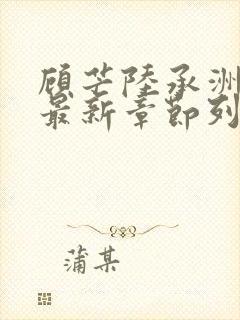 顾芒陆承洲
最新章节列
蒲某